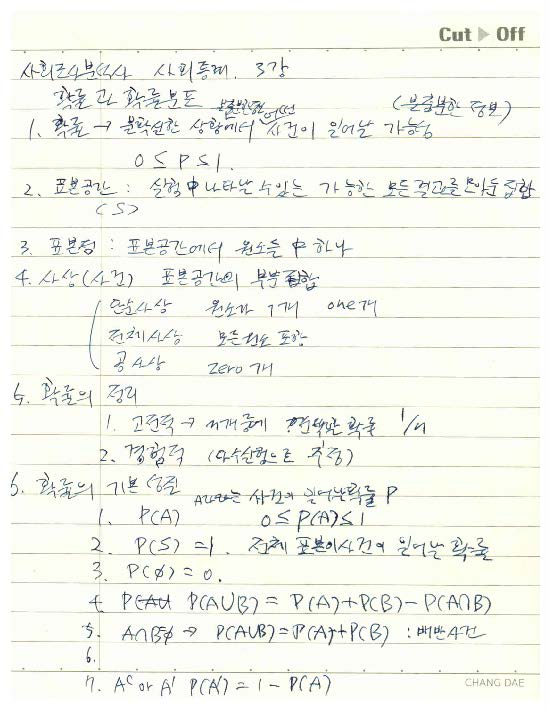 Cut ▷ Off
사회조사분석사 사회통계. 3강
확률과 확률분포
불분명한 어떤 (불충분한 정보)
1. 확률 → 불확실한 상황에서 사건이 일어날 가능성
0 ≤ P ≤ 1.
2. 표본공간 : 실험中 나타날 수 있는 가능한 모든 결과를 모아둔 집합
<S>
3. 표본점 : 표본공간에서 원소들 中 하나
4. 사상(사건) 표본공간의 부분집합
단순사상 원소가 1개 one개
전체사상 모든원소 포함
공사상 zero개
4. 확률의 정리
1. 고전적 → n개중에 확률 1/n
2. 경험적 (다수실험으로 추정)
5. 확률의 기본 성질
A라는 사건이 일어날 확률 P
1. P(A) 0 ≤ P(A) ≤ 1
2. P(S) = 1. 전체 표본이 사건이 일어날 확률
3. P(∅) = 0.
4. P(A∪B) = P(A)+P(B)-P(A∩B)
5. A∩B∅ → P(A∪B)=P(A)+P(B) : 배반사건
6.
7. Aᶜ or A' P(A') = 1 - P(A)
CHANG DAE